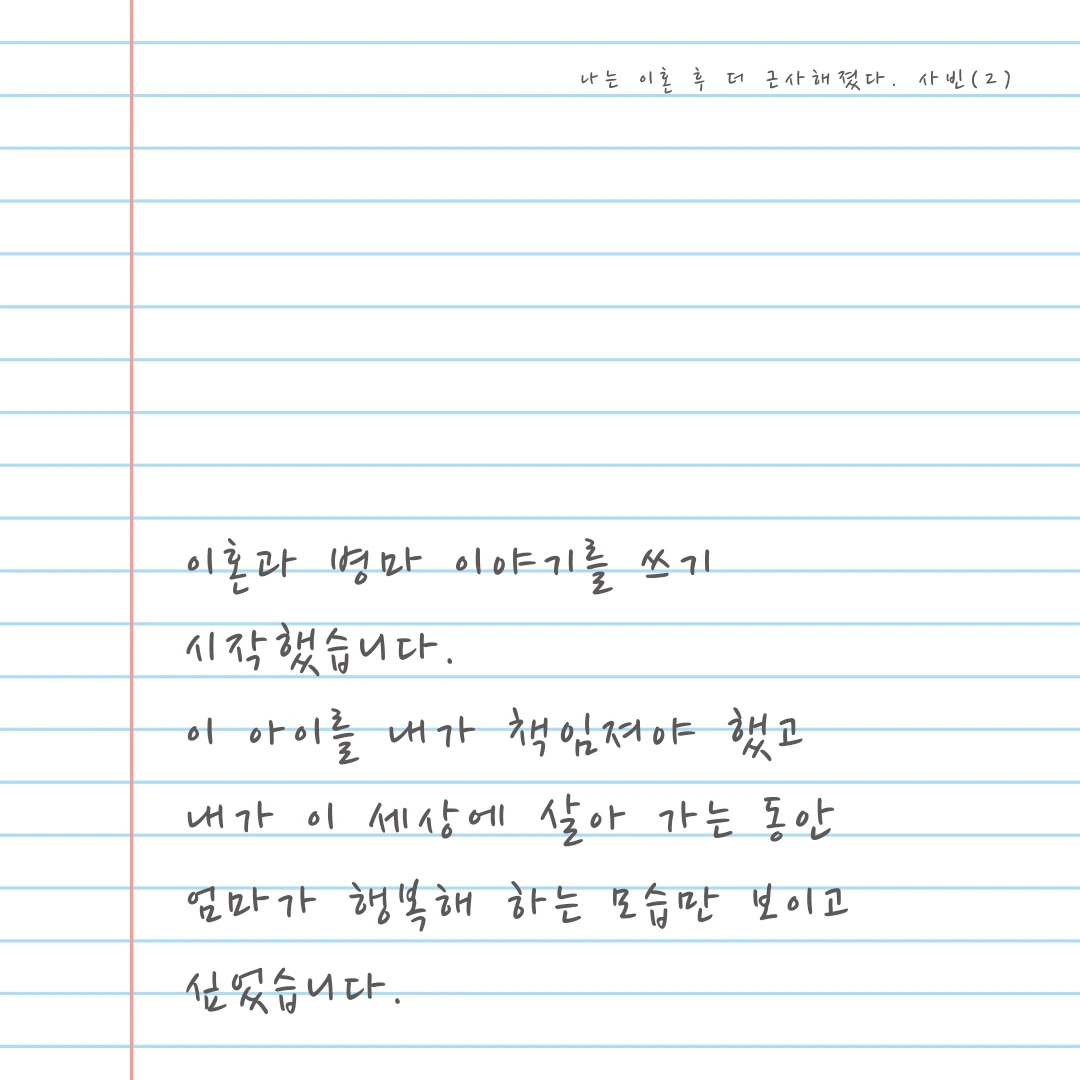 나는 이혼 후 더 근사해졌다. 사빈(2)
이혼과 병마 이야기를 쓰기
시작했습니다.
이 아이를 내가 책임져야 했고
내가 이 세상에 살아 가는 동안
엄마가 행복해 하는 모습만 보이고
싶었습니다.